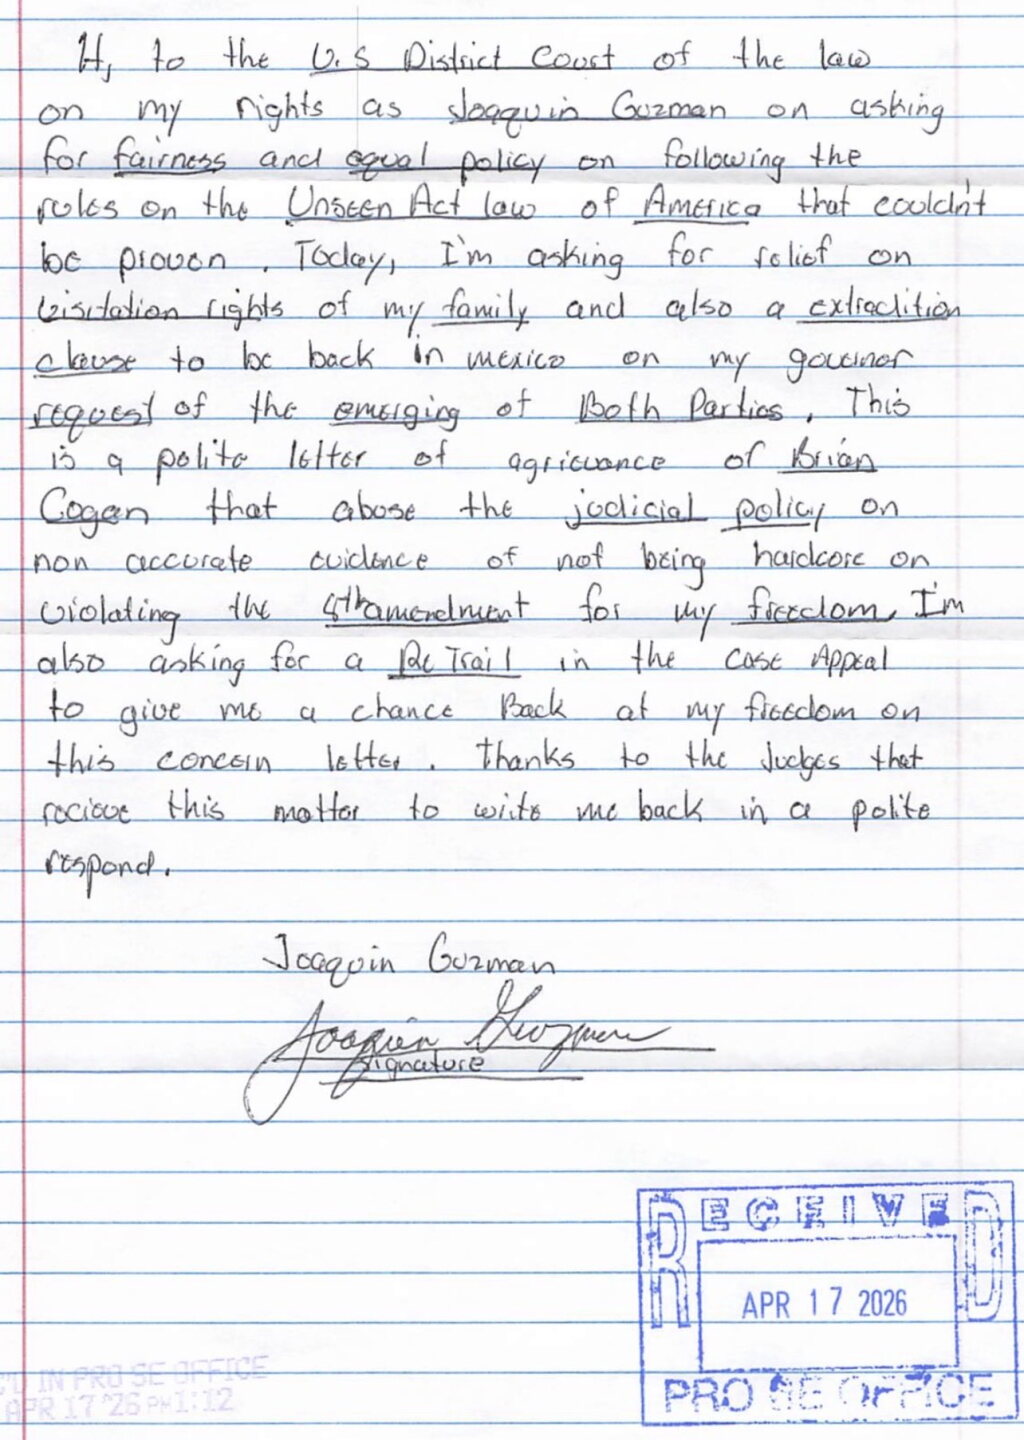 Hi, to the U.S District Court of the law
on my rights as Joaquin Guzman on asking
for fairness and equal policy on following the
rules on the Unseen Act law of America that couldn't
be proven. Today, I'm asking for relief on
visitation rights of my family and also a extradition
clause to be back in mexico on my governor
request of the emerging of Both Parties. This
is a polite letter of agrievance of Brian
Cogan that abuse the judicial policy on
non accurate evidence of not being hardcore on
violating the 8th amendment for my freedom, I'm
also asking for a Re Trail in the case Appeal
to give me a chance Back at my freedom on
this concern letter. Thanks to the Judges that
recieve this matter to write me back in a polite
respond.
Joaquin Guzman
Joaquin Guzman
signature
RECEIVED
APR 17 2026
PRO SE OFFICE
IN PRO SE OFFICE
APR 17 '26 PM 1:12